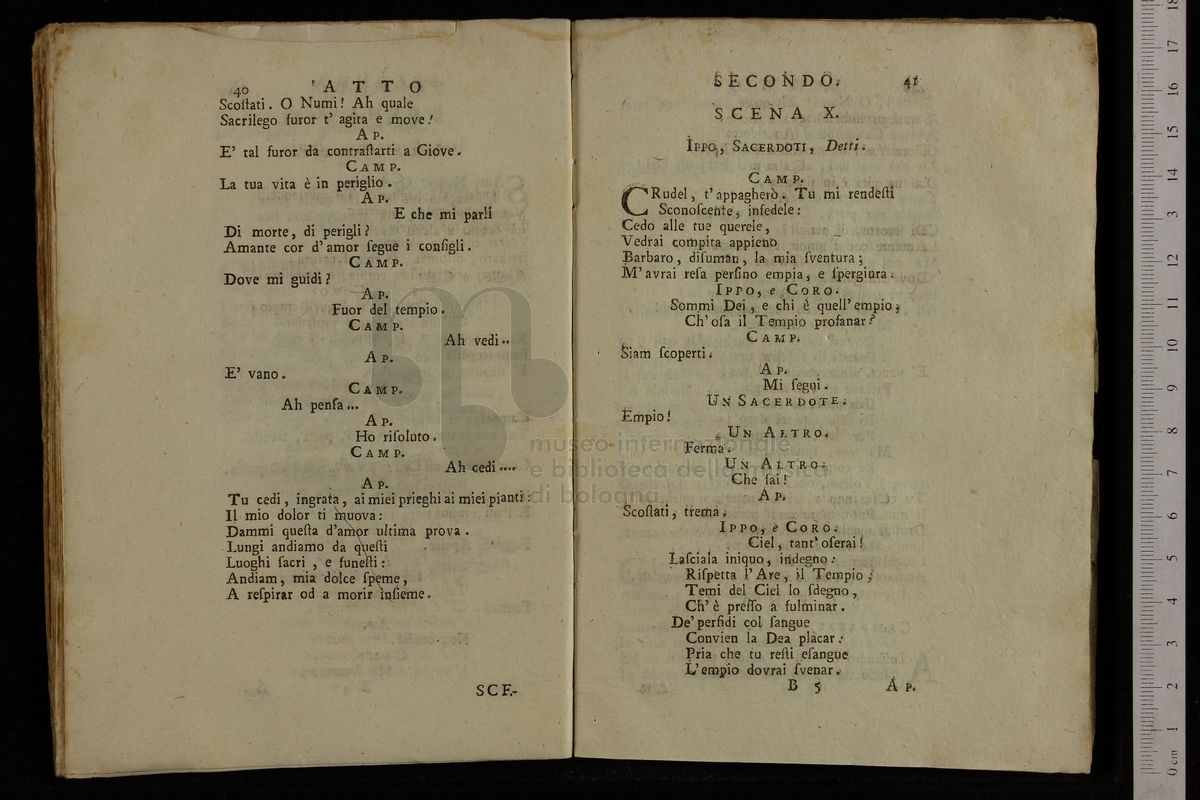 40 'ATTO
Scoſtati. O Numi! Ah quale
Sacrilego furor t' agita e move!
AP.
E' tal furor da contraſtarti a Giove.
CAMP.
La tua vita è in periglio.
AP.
E che mi parli
Di morte, di perigli?
Amante cor d'amor ſegue i conſigli.
CAMP.
Dove mi guidi?
AP.
Fuor del tempio.
CAMP.
Ah vedi..
AP.
E' vano.
CAMP.
Ah penſa...
AP.
Ho riſoluto.
CAMP.
Ah cedi....
AP.
Tu cedi, ingrata, ai miei prieghi ai miei pianti:
Il mio dolor ti muova:
Dammi queſta d'amor ultima prova.
Lungi andiamo da queſti
Luoghi ſacri, e funeſti:
Andiam, mia dolce ſpeme,
A reſpirar od a morir inſieme.
SCE-
SECONDO. 41
SCENA X.
IPPO, SACERDOTI, Detti.
CAMP.
CRudel, t'appagherò. Tu mi rendeſti
Sconoſcente, infedele:
Cedo alle tue querele,
Vedrai compita appieno
Barbaro, diſuman, la mia ſventura;
M'avrai reſa perſino empia, e ſpergiura.
IPPO, e CORO.
Sommi Dei, e chi è quell'empio,
Ch'oſa il Tempio profanar?
CAMP.
Siam ſcoperti.
AP.
Mi ſegui.
UN SACERDOTE.
Empio!
UN ALTRO.
Ferma.
UN ALTRO.
Che fai!
AP.
Scoſtati, trema.
IPPO, e CORO.
Ciel, tant' oſerai!
Laſciala iniquo, indegno:
Riſpetta l'Are, il Tempio;
Temi del Ciel lo ſdegno,
Ch' è preſſo a fulminar.
De' perfidi col ſangue
Convien la Dea placar:
Pria che tu reſti eſangue
L'empio dovrai ſvenar.
B 5 AP.
museo internazionale
e biblioteca della musica
di bologna